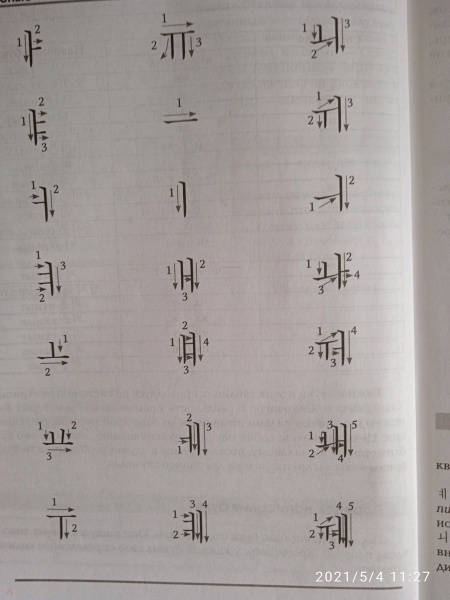 1 2 ㅏ 1 2 3 ㅠ 1 2 3 ㅚ
1 2 3 ㅑ 1 ㅡ 1 2 3 ㅟ
1 2 ㅓ 1 ㅣ 1 2 ㅢ
1 2 3 ㅕ 1 2 3 ㅐ 1 2 3 4 ㅘ
1 2 ㅗ 1 2 3 4 ㅒ 1 2 3 4 ㅝ
1 2 3 ㅛ 1 2 3 ㅔ 1 2 3 4 5 ㅙ
1 2 ㅜ 1 2 3 4 ㅖ 1 2 3 4 5 ㅞ
2021/5/4 11:27